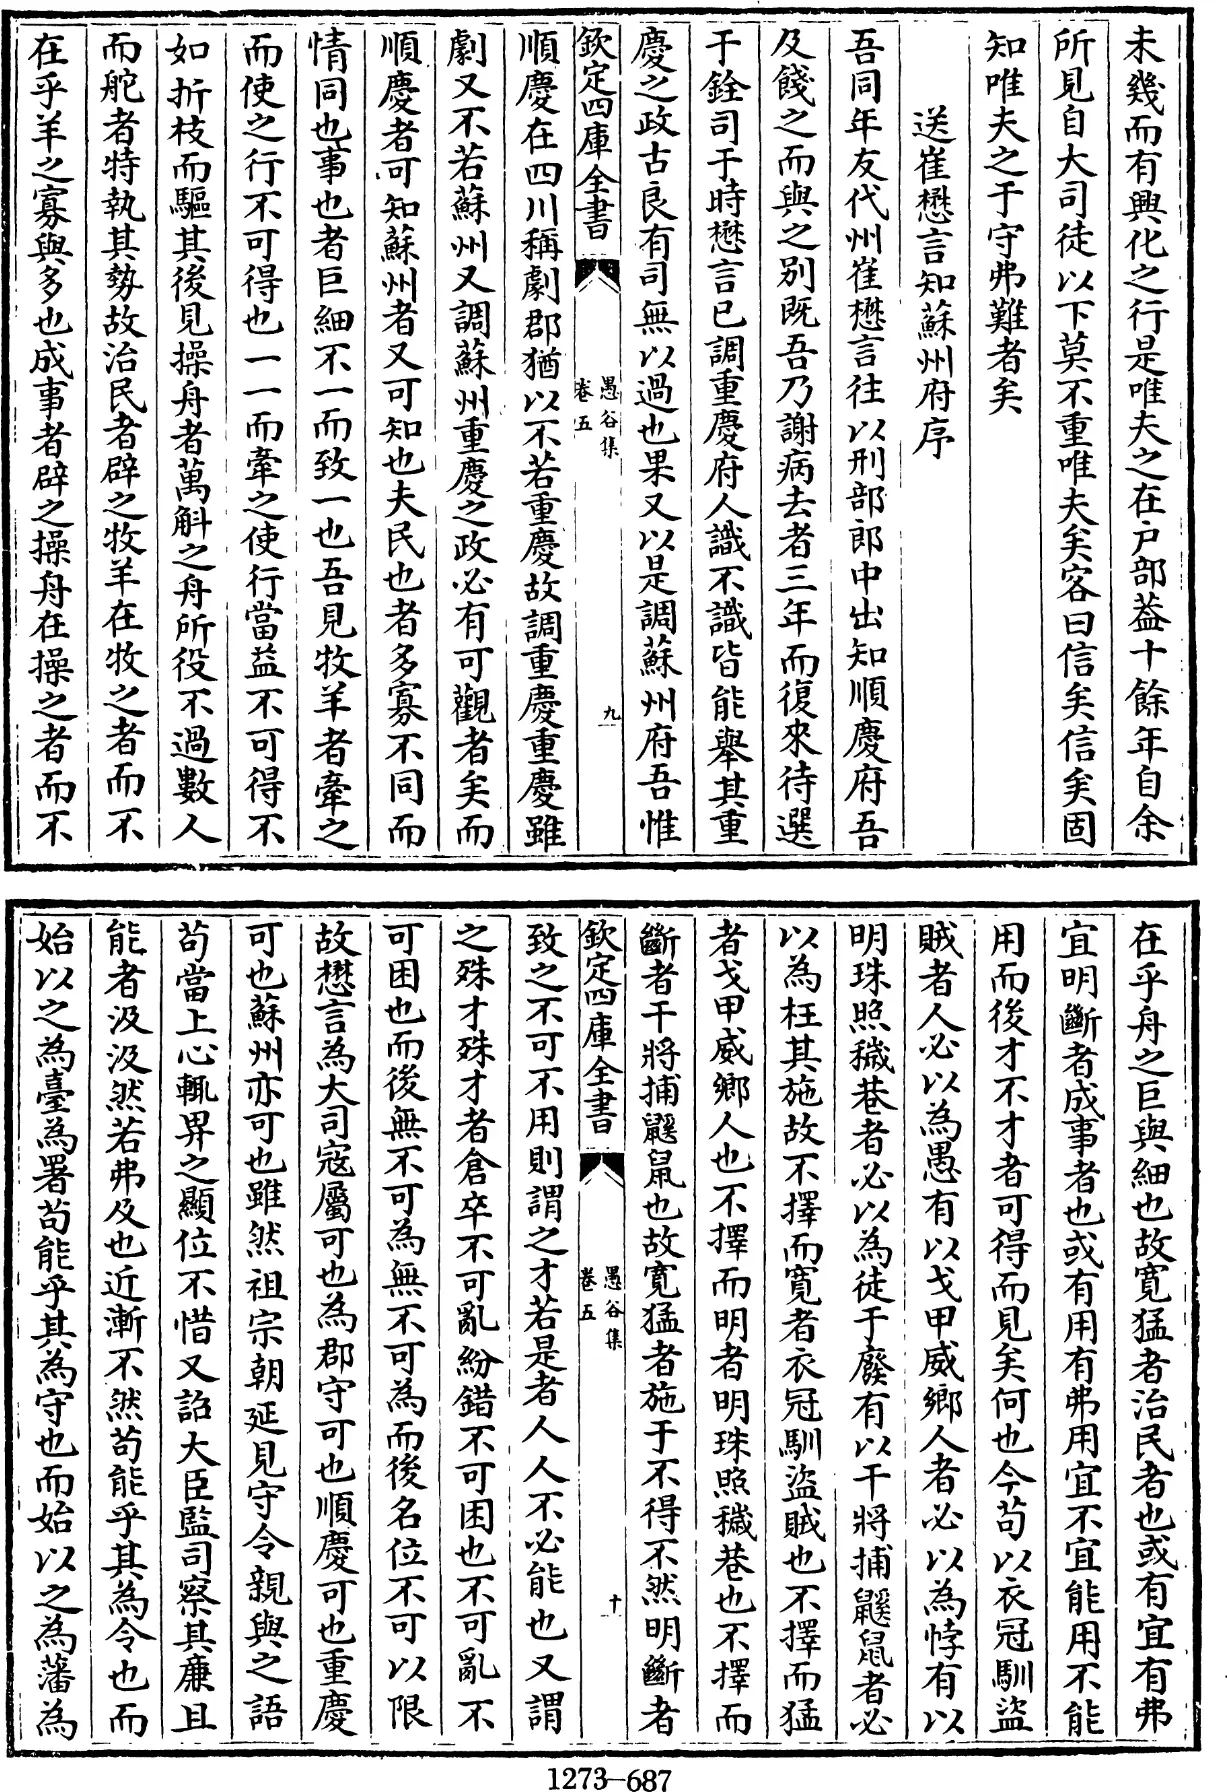 未幾而有興化之行是唯夫之在户部葢十餘年自余
所見自大司徒以下莫不重唯夫矣客曰信矣信矣固
知唯夫之于守弗難者矣
送崔懋言知蘇州府序
吾同年友代州崔懋言往以刑部郎中出知順慶府吾
及餞之而與之别既吾乃謝病去者三年而復來待選
于銓司于時懋言已調重慶府人識不識皆能舉其重
慶之政古良有司無以過也果又以是調蘇州府吾惟
欽定四庫全書
愚谷集
卷五
九
順慶在四川稱劇郡猶以不若重慶故調重慶重慶雖
劇又不若蘇州又調蘇州重慶之政必有可觀者矣而
順慶者可知蘇州者又可知也夫民也者多寡不同而
情同也事也者巨細不一而致一也吾見牧羊者牽之
而使之行不可得也一一而牽之使行當益不可得不
如折枝而驅其後見操舟者萬斛之舟所役不過數人
而舵者特執其勢故治民者辟之牧羊在牧之者而不
在乎羊之寡與多也成事者辟之操舟在操之者而不
在乎舟之巨與細也故寛猛者治民者也或有宜有弗
宜明斷者成事者也或有用有弗用宜不宜能用不能
用而後才不才者可得而見矣何也今茍以衣冠馴盜
賊者人必以為愚有以戈甲威鄉人者必以為悖有以
明珠照穢巷者必以為徒于廢有以干將捕鼷鼠者必
以為枉其施故不擇而寛者衣冠馴盜賊也不擇而猛
者戈甲威鄉人也不擇而明者明珠照穢巷也不擇而
斷者干將捕鼷鼠也故寛猛者施于不得不然明斷者
欽定四庫全書
愚谷集
卷五
十
致之不可不用則謂之才若是者人人不必能也又謂
之殊才殊才者倉卒不可亂紛錯不可困也不可亂不
可困也而後無不可為無不可為而後名位不可以限
故懋言為大司寇屬可也為郡守可也順慶可也重慶
可也蘇州亦可也雖然祖宗朝延見守令親與之語
茍當上心輒畀之顯位不惜又詔大臣監司察其廉且
能者汲汲然若弗及也近漸不然茍能乎其為令也而
始以之為臺為署茍能乎其為守也而始以之為藩為
1273—687